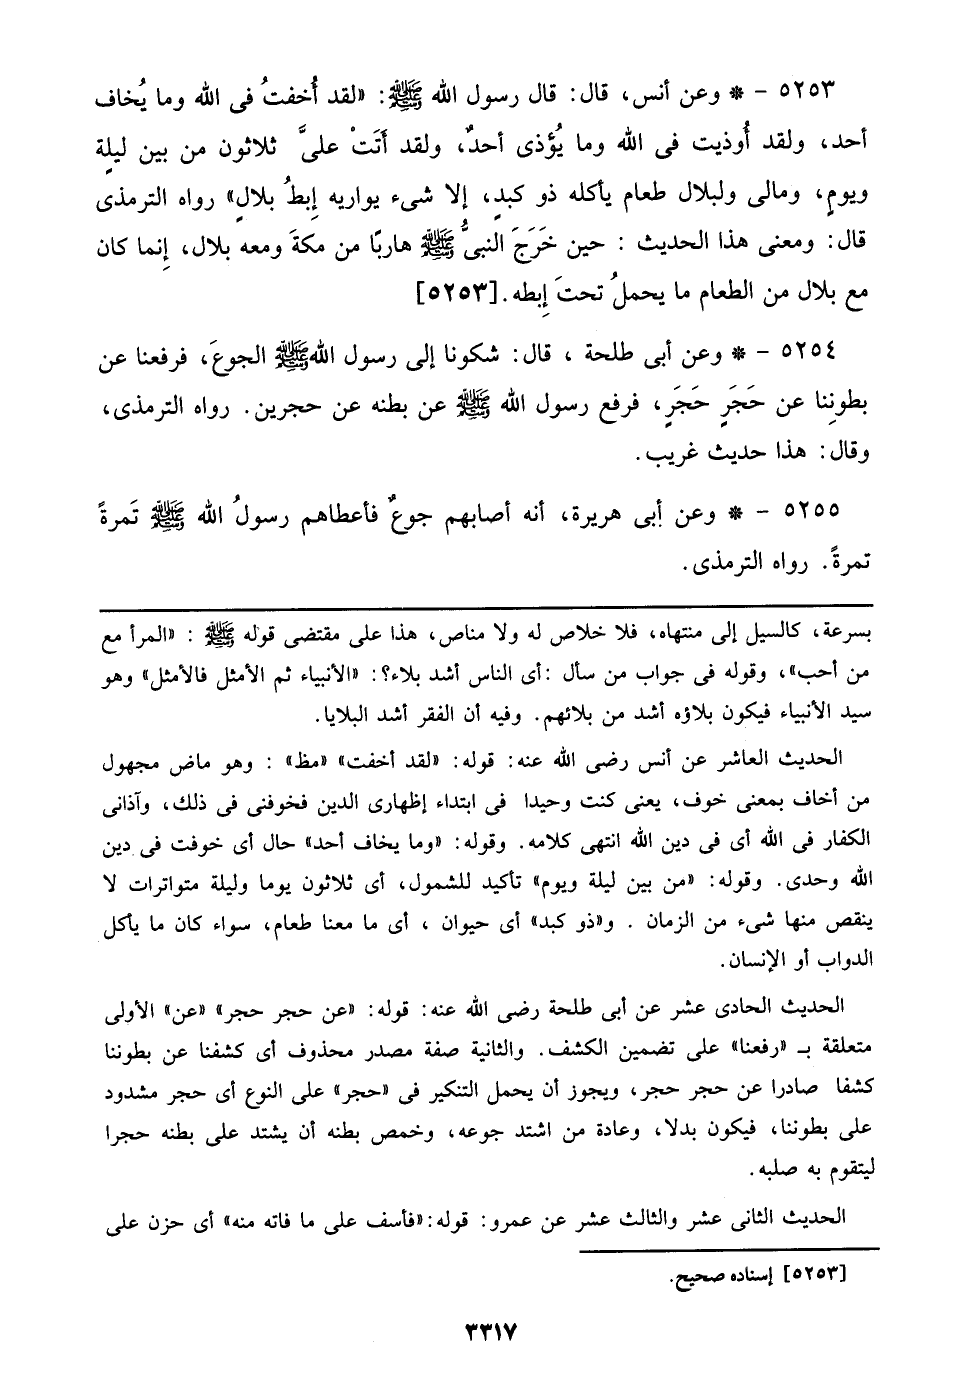 ٥٢٥٣ – * وعن أنس، قال: قال رسول الله ﷺ: «لقد أُخفتُ فى الله وما يُخاف
أحد، ولقد أُوذيت فى الله وما يُؤذى أحدٌ، ولقد أَتَتْ علىَّ ثلاثون من بين ليلةٍ
ويومٍ، ومالى ولبلال طعام يأكله ذو كبدٍ، إلا شىء يواريه إبطُ بلالٍ» رواه الترمذى
قال: ومعنى هذا الحديث : حين خَرَجَ النبىُّ ﷺ هاربًا من مكةَ ومعه بلال، إنما كان
مع بلال من الطعام ما يحملُ تحتَ إبطه. [٥٢٥٣]
٥٢٥٤ – * وعن أبى طلحة ، قال: شكونا إلى رسول الله ﷺ الجوعَ، فرفعنا عن
بطونِنا عن حَجَرٍ حَجَرٍ، فرفع رسول الله ﷺ عن بطنه عن حجرين. رواه الترمذى،
وقال: هذا حديث غريب.
٥٢٥٥ – * وعن أبى هريرة، أنه أصابهم جوعٌ فأعطاهم رسولُ الله ﷺ تَمرةً
تمرةً. رواه الترمذى.
بسرعة، كالسيل إلى منتهاه، فلا خلاص له ولا مناص، هذا على مقتضى قوله ﷺ : «المرأ مع
من أحب»، وقوله فى جواب من سأل :أى الناس أشد بلاء؟: «الأنبياء ثم الأمثل فالأمثل» وهو
سيد الأنبياء فيكون بلاؤه أشد من بلائهم. وفيه أن الفقر أشد البلايا.
الحديث العاشر عن أنس رضى الله عنه: قوله: «لقد أخفت» «مظ» : وهو ماض مجهول
من أخاف بمعنى خوف، يعنى كنت وحيدا فى ابتداء إظهارى الدين فخوفنى فى ذلك، وآذانى
الكفار فى الله أى فى دين الله انتهى كلامه. وقوله: «وما يخاف أحد» حال أى خوفت فى دين
الله وحدى. وقوله: «من بين ليلة ويوم» تأكيد للشمول، أى ثلاثون يوما وليلة متواترات لا
ينقص منها شىء من الزمان . و«ذو كبد» أى حيوان ، أى ما معنا طعام، سواء كان ما يأكل
الدواب أو الإنسان.
الحديث الحادى عشر عن أبى طلحة رضى الله عنه: قوله: «عن حجر حجر» «عن» الأولى
متعلقة بـ «رفعنا» على تضمين الكشف. والثانية صفة مصدر محذوف أى كشفنا عن بطوننا
كشفا صادرا عن حجر حجر، ويجوز أن يحمل التنكير فى «حجر» على النوع أى حجر مشدود
على بطوننا، فيكون بدلا، وعادة من اشتد جوعه، وخمص بطنه أن يشتد على بطنه حجرا
ليتقوم به صلبه.
الحديث الثانى عشر والثالث عشر عن عمرو: قوله:«فأسف على ما فاته منه» أى حزن على
[٥٢٥٣] إسناده صحيح.
٣٣١٧